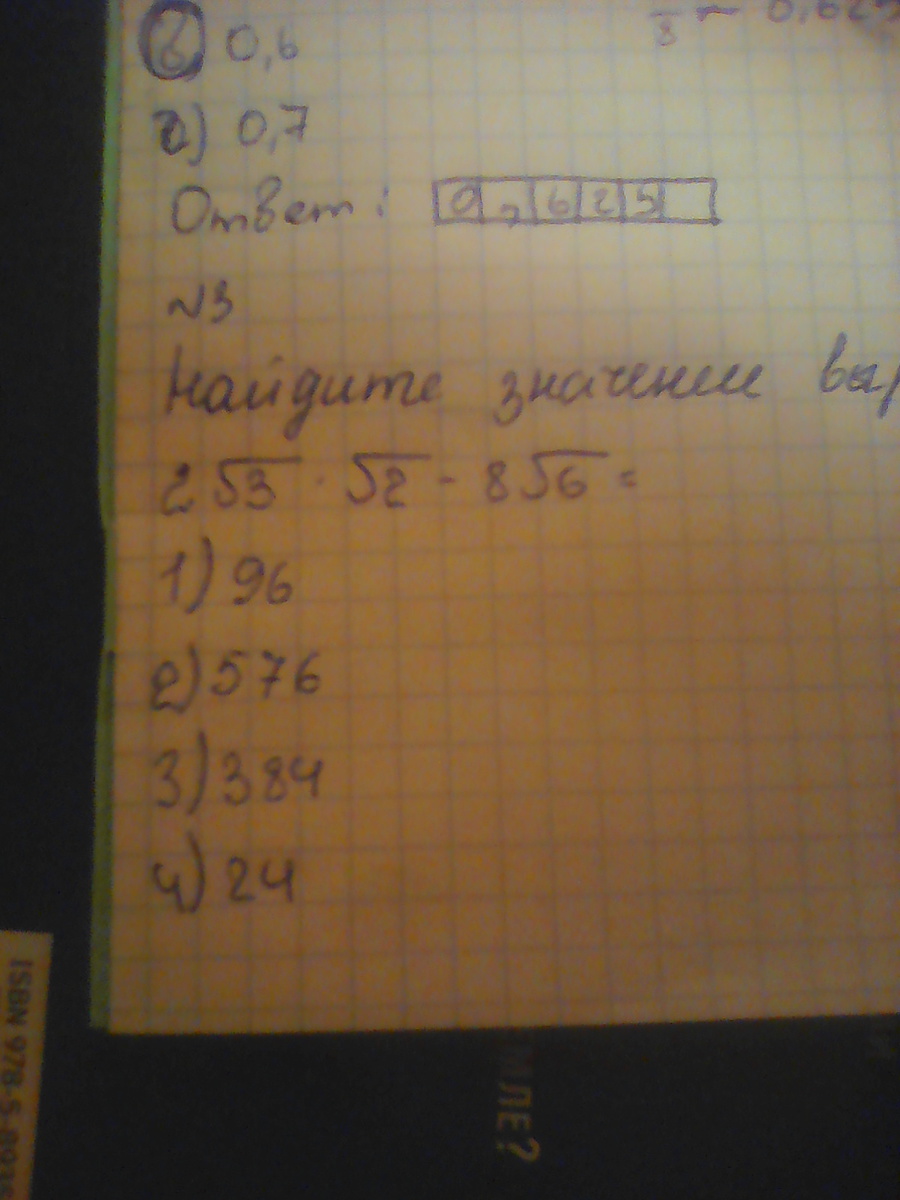 в 0,6
8 0,625
г) 0,7
Ответ: 0,625
N3
Найдите значение
2√3 · √2 - 8√6 =
1) 96
2) 576
3) 384
4) 24
ISBN 978-5
МЛЕ?